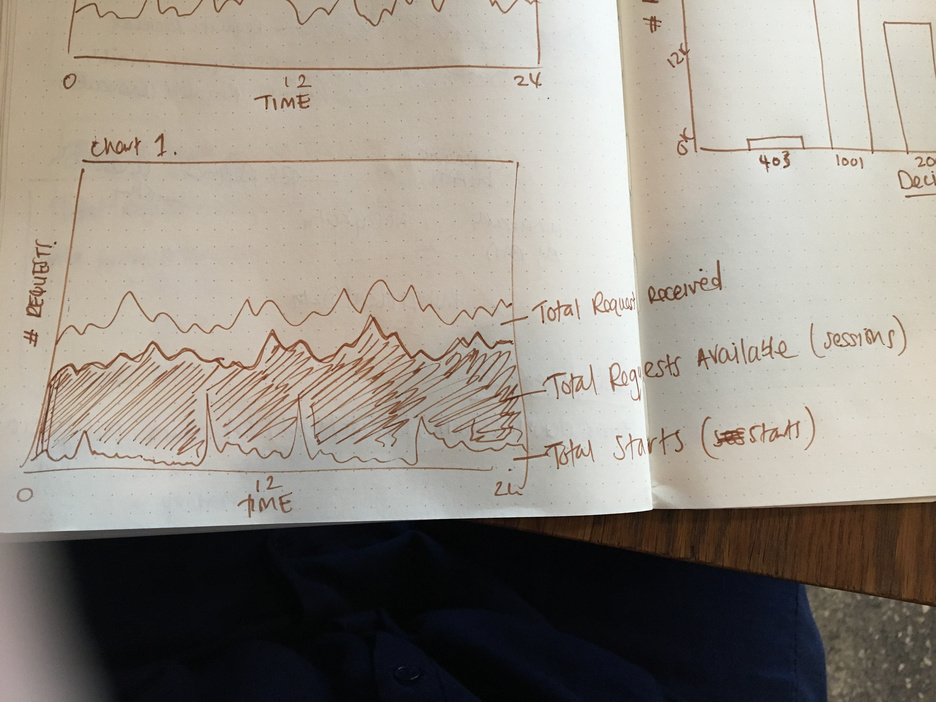 0 12 24
TIME
Chart 1.
# REQUESTS
Total Request received
Total Requests Available (sessions)
Total Starts (starts)
0 12 24
TIME
#
12k
0k
403 1001 20
Deci